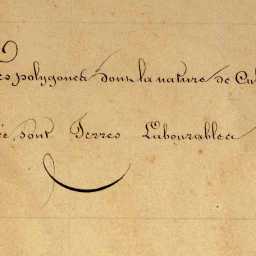 es polygones dont la nature de Cul
é, sont Terres Labourables